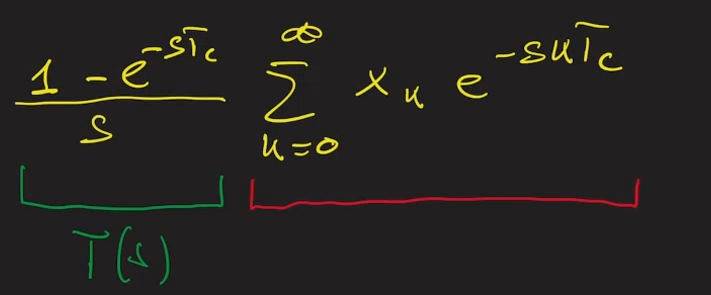 \frac{1 - e^{-sT_c}}{s} \sum_{k=0}^{\infty} x_k e^{-skT_c}
T(s)